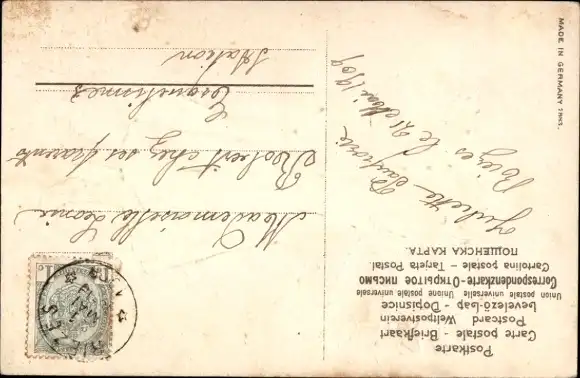 Postkarte
Carte postale – Briefkaart
Postcard Weltpostverein
Levelező-Lap – Dopisnice
Union postale universelle Unione postale universale
Correspondenzkarte – Открытое письмо
Cartolina postale – Tarjeta Postal.
ПОЩЕНСКА КАРТА.
Mademoiselle Leonie
Robert chez ses parents
Ecaussines
Station
Juliette
Bierges le 21 Mai 1909
MADE IN GERMANY